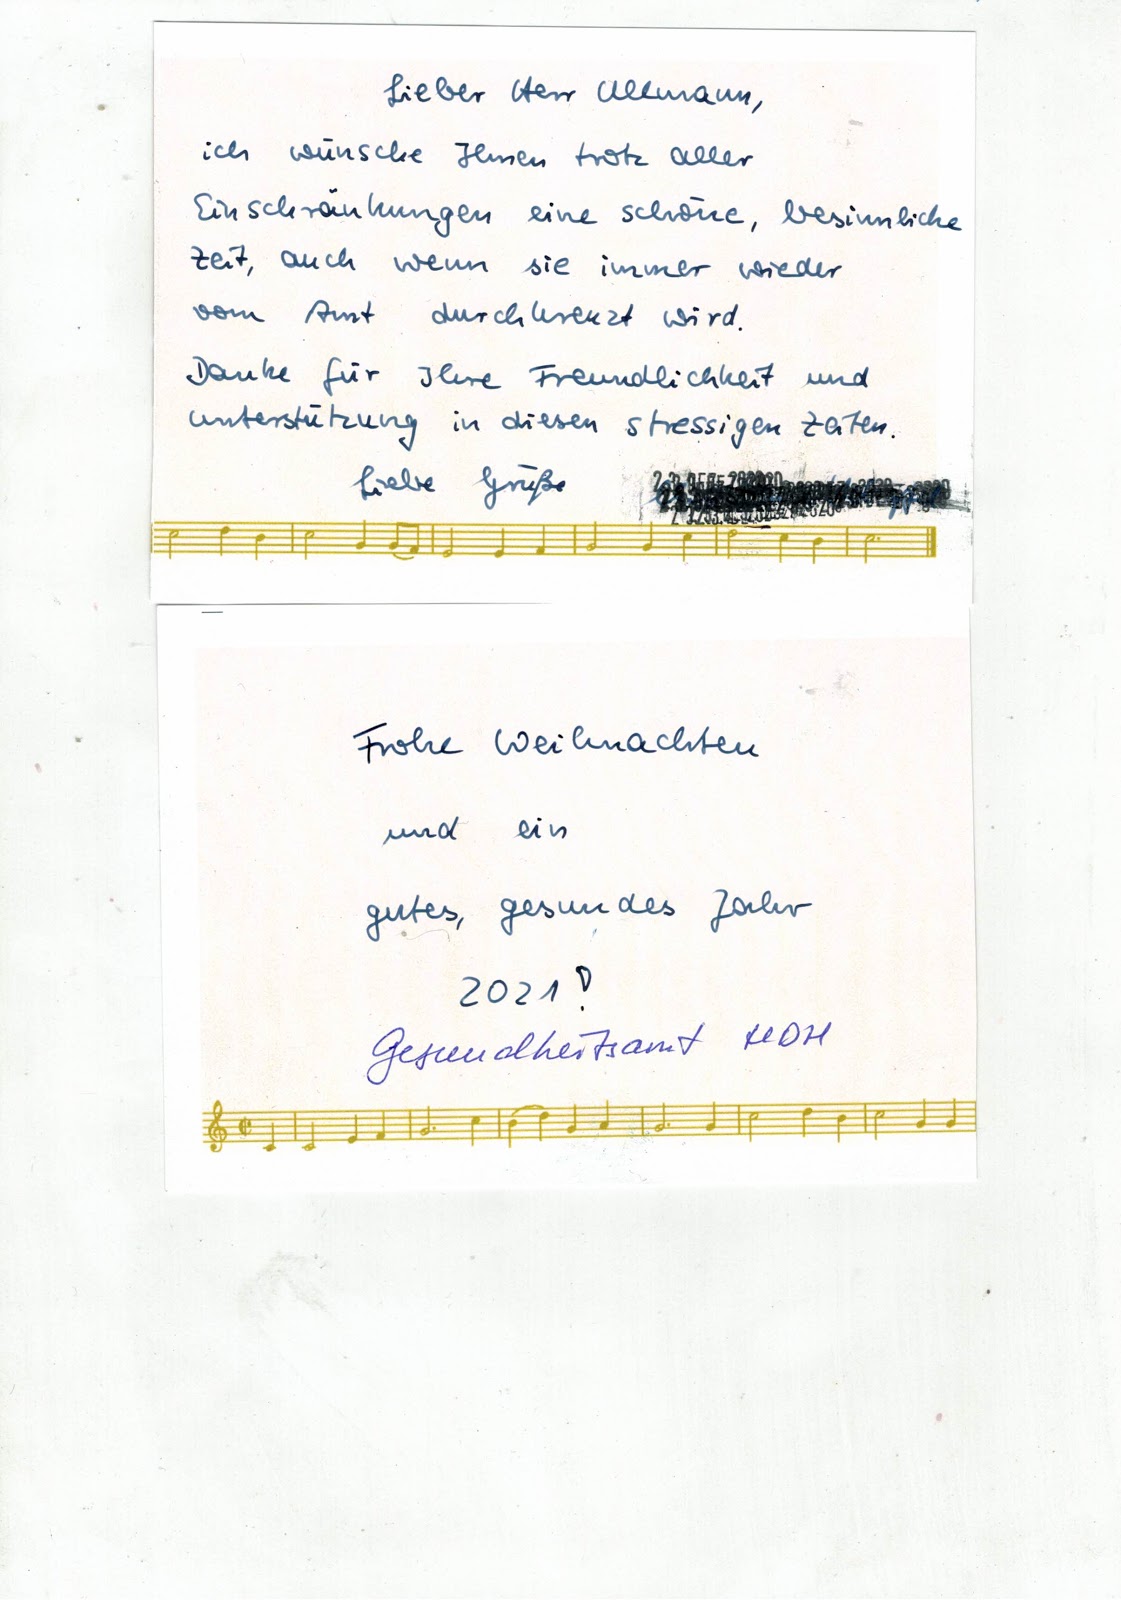 Lieber Herr Ullmann,
ich wünsche Ihnen trotz aller
Einschränkungen eine schöne, besinnliche
Zeit, auch wenn sie immer wieder
vom Amt durchkreuzt wird.
Danke für Ihre Freundlichkeit und
Unterstützung in diesen stressigen Zeiten.
Liebe Grüße
Frohe Weihnachten
und ein
gutes, gesundes Jahr
2021!
Gesundheitsamt HDH